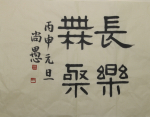 長樂
無聚
丙申元旦
尚愚